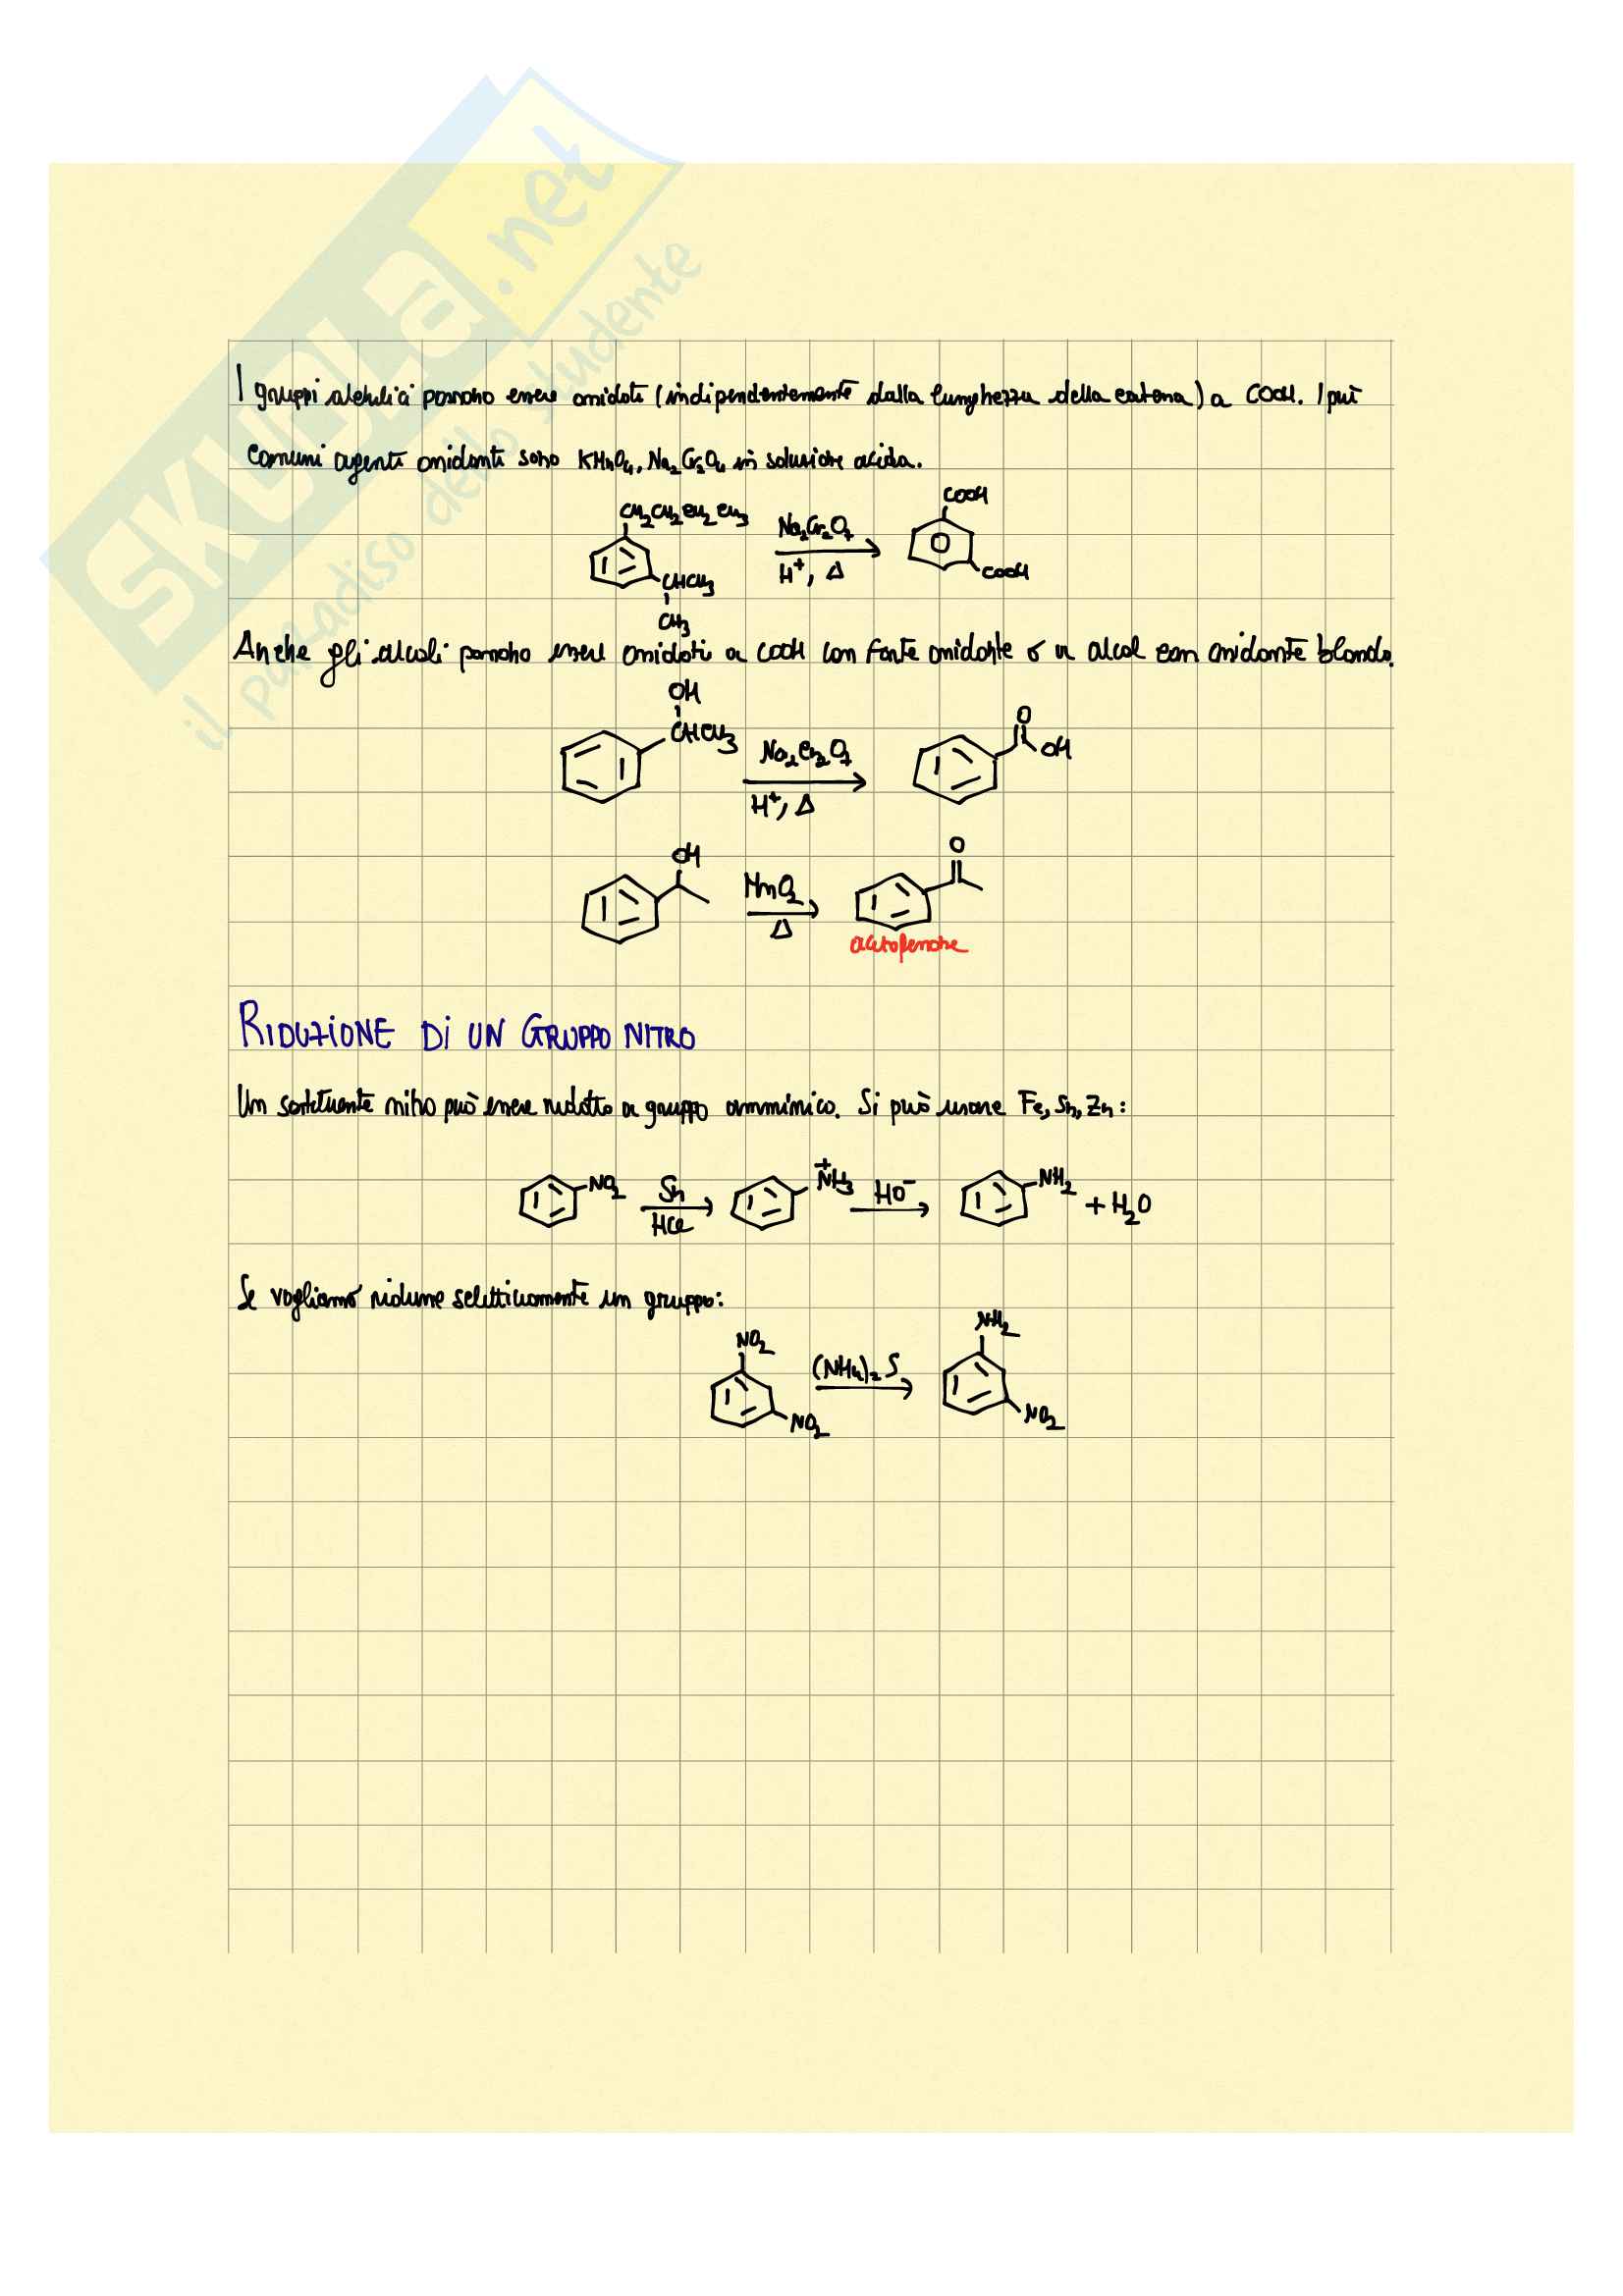 SKUOLA.net
il paradiso dello studente
I gruppi alchilici possono essere ossidati (indipendentemente dalla lunghezza della catena) a COOH. I più
comuni agenti ossidanti sono KMnO4, Na2Cr2O4 in soluzione acida.
CH2CH2CH2CH3 Na2Cr2O7 H+, Δ COOH
CHCH3 COOH
CH3
Anche gli alcoli possono essere ossidati a COOH con forte ossidante o a alcol con ossidante blando.
OH
CHCH3 Na2Cr2O7 H+, Δ O OH
OH MnO2 Δ O
acetofenone
RIDUZIONE Di UN GRUPPO NITRO
Un sostituente nitro può essere ridotto a gruppo amminico. Si può usare Fe, Sn, Zn:
NO2 Sn HCl +NH3 HO- NH2 + H2O
Se vogliamo ridurre selettivamente un gruppo:
NO2 (NH4)2 S NH2
NO2 NO2